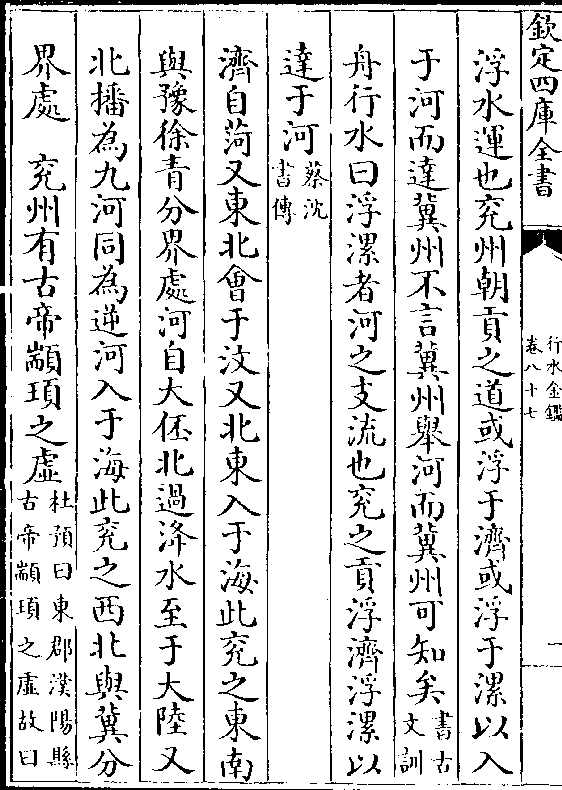 欽定四庫全書
行水金鑑
卷八十七
一
浮水運也兖州朝貢之道或浮于濟或浮于漯以入
于河而達冀州不言冀州舉河而冀州可知矣書古
文訓
舟行水曰浮漯者河之支流也兖之貢浮濟浮漯以
達于河蔡沈
書傳
濟自菏又東北會于汶又北東入于海此兖之東南
與豫徐青分界處河自大伾北過洚水至于大陸又
北播為九河同為逆河入于海此兖之西北與冀分
界處　兖州有古帝顓頊之虛杜預曰東郡濮陽縣
古帝顓頊之虛故曰